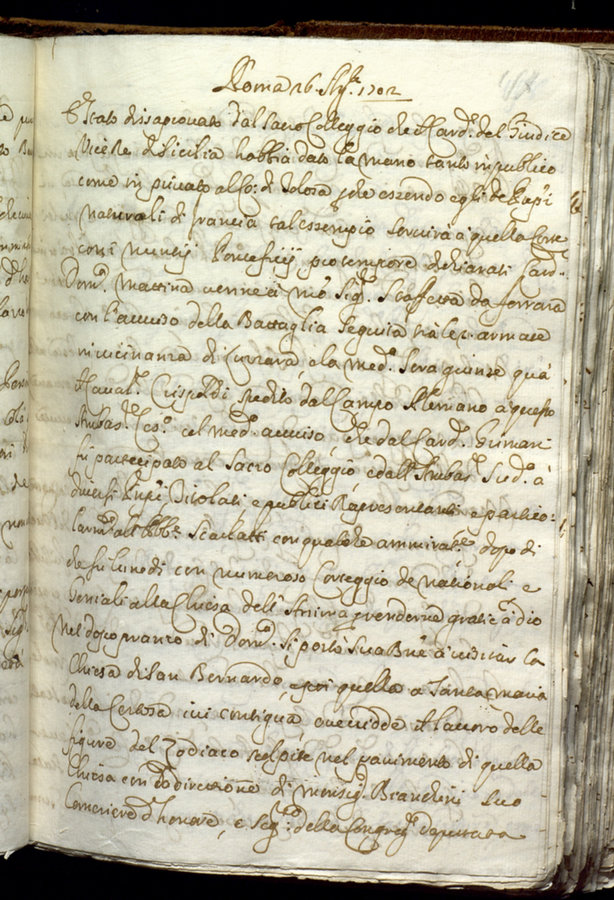 Roma 26 Agto. 1702
È stato disaprovato dal Sacro Colleggio che il Card. del Giudice
Vice Re di Sicilia habbia dato la mano tanto in publico
come in privato al Co: di Tolosa, che essendo egli de
naturali di francia tal essempio servirà a quella Corte
con i nuntij Pontificij pro tempore dichiarati Card.
Dom. mattina venne à mo Sig. Staffetta da ferrara
con l'avviso della Battaglia seguita trà le 2. armate
in vicinanza di Luzzara, e la med. sera giunse quà
il Caval. Crispoldi spedito dal Campo Alemano a questo
Ambas. Ces. col med. avviso che dal Card. Grimani
fù partecipato al Sacro Colleggio e dall' Ambas. Sud. à
diversi Titolati, e publici Rapresentanti, e partico:
larm. all' Abb. Scarlatti con qualche ammiraz.ne dopo di
che fu lunedì con numeroso Corteggio de nationali, e
Geniali alla Chiesa dell' Anima à renderne gratie à dio
Nel dopo pranzo di Dom. si portò Sua Bne à visitar la
Chiesa di San Bernardo, e poi quella a Santa Maria
della Certosa ivi contigua, ove vidde il lavoro delle
figure del Zodiaco scolpite nel pavimento di quella
Chiesa con direzione di monsig. Bianchini suo
Cameriere d'honore, e Seg. della Congreg. deputata